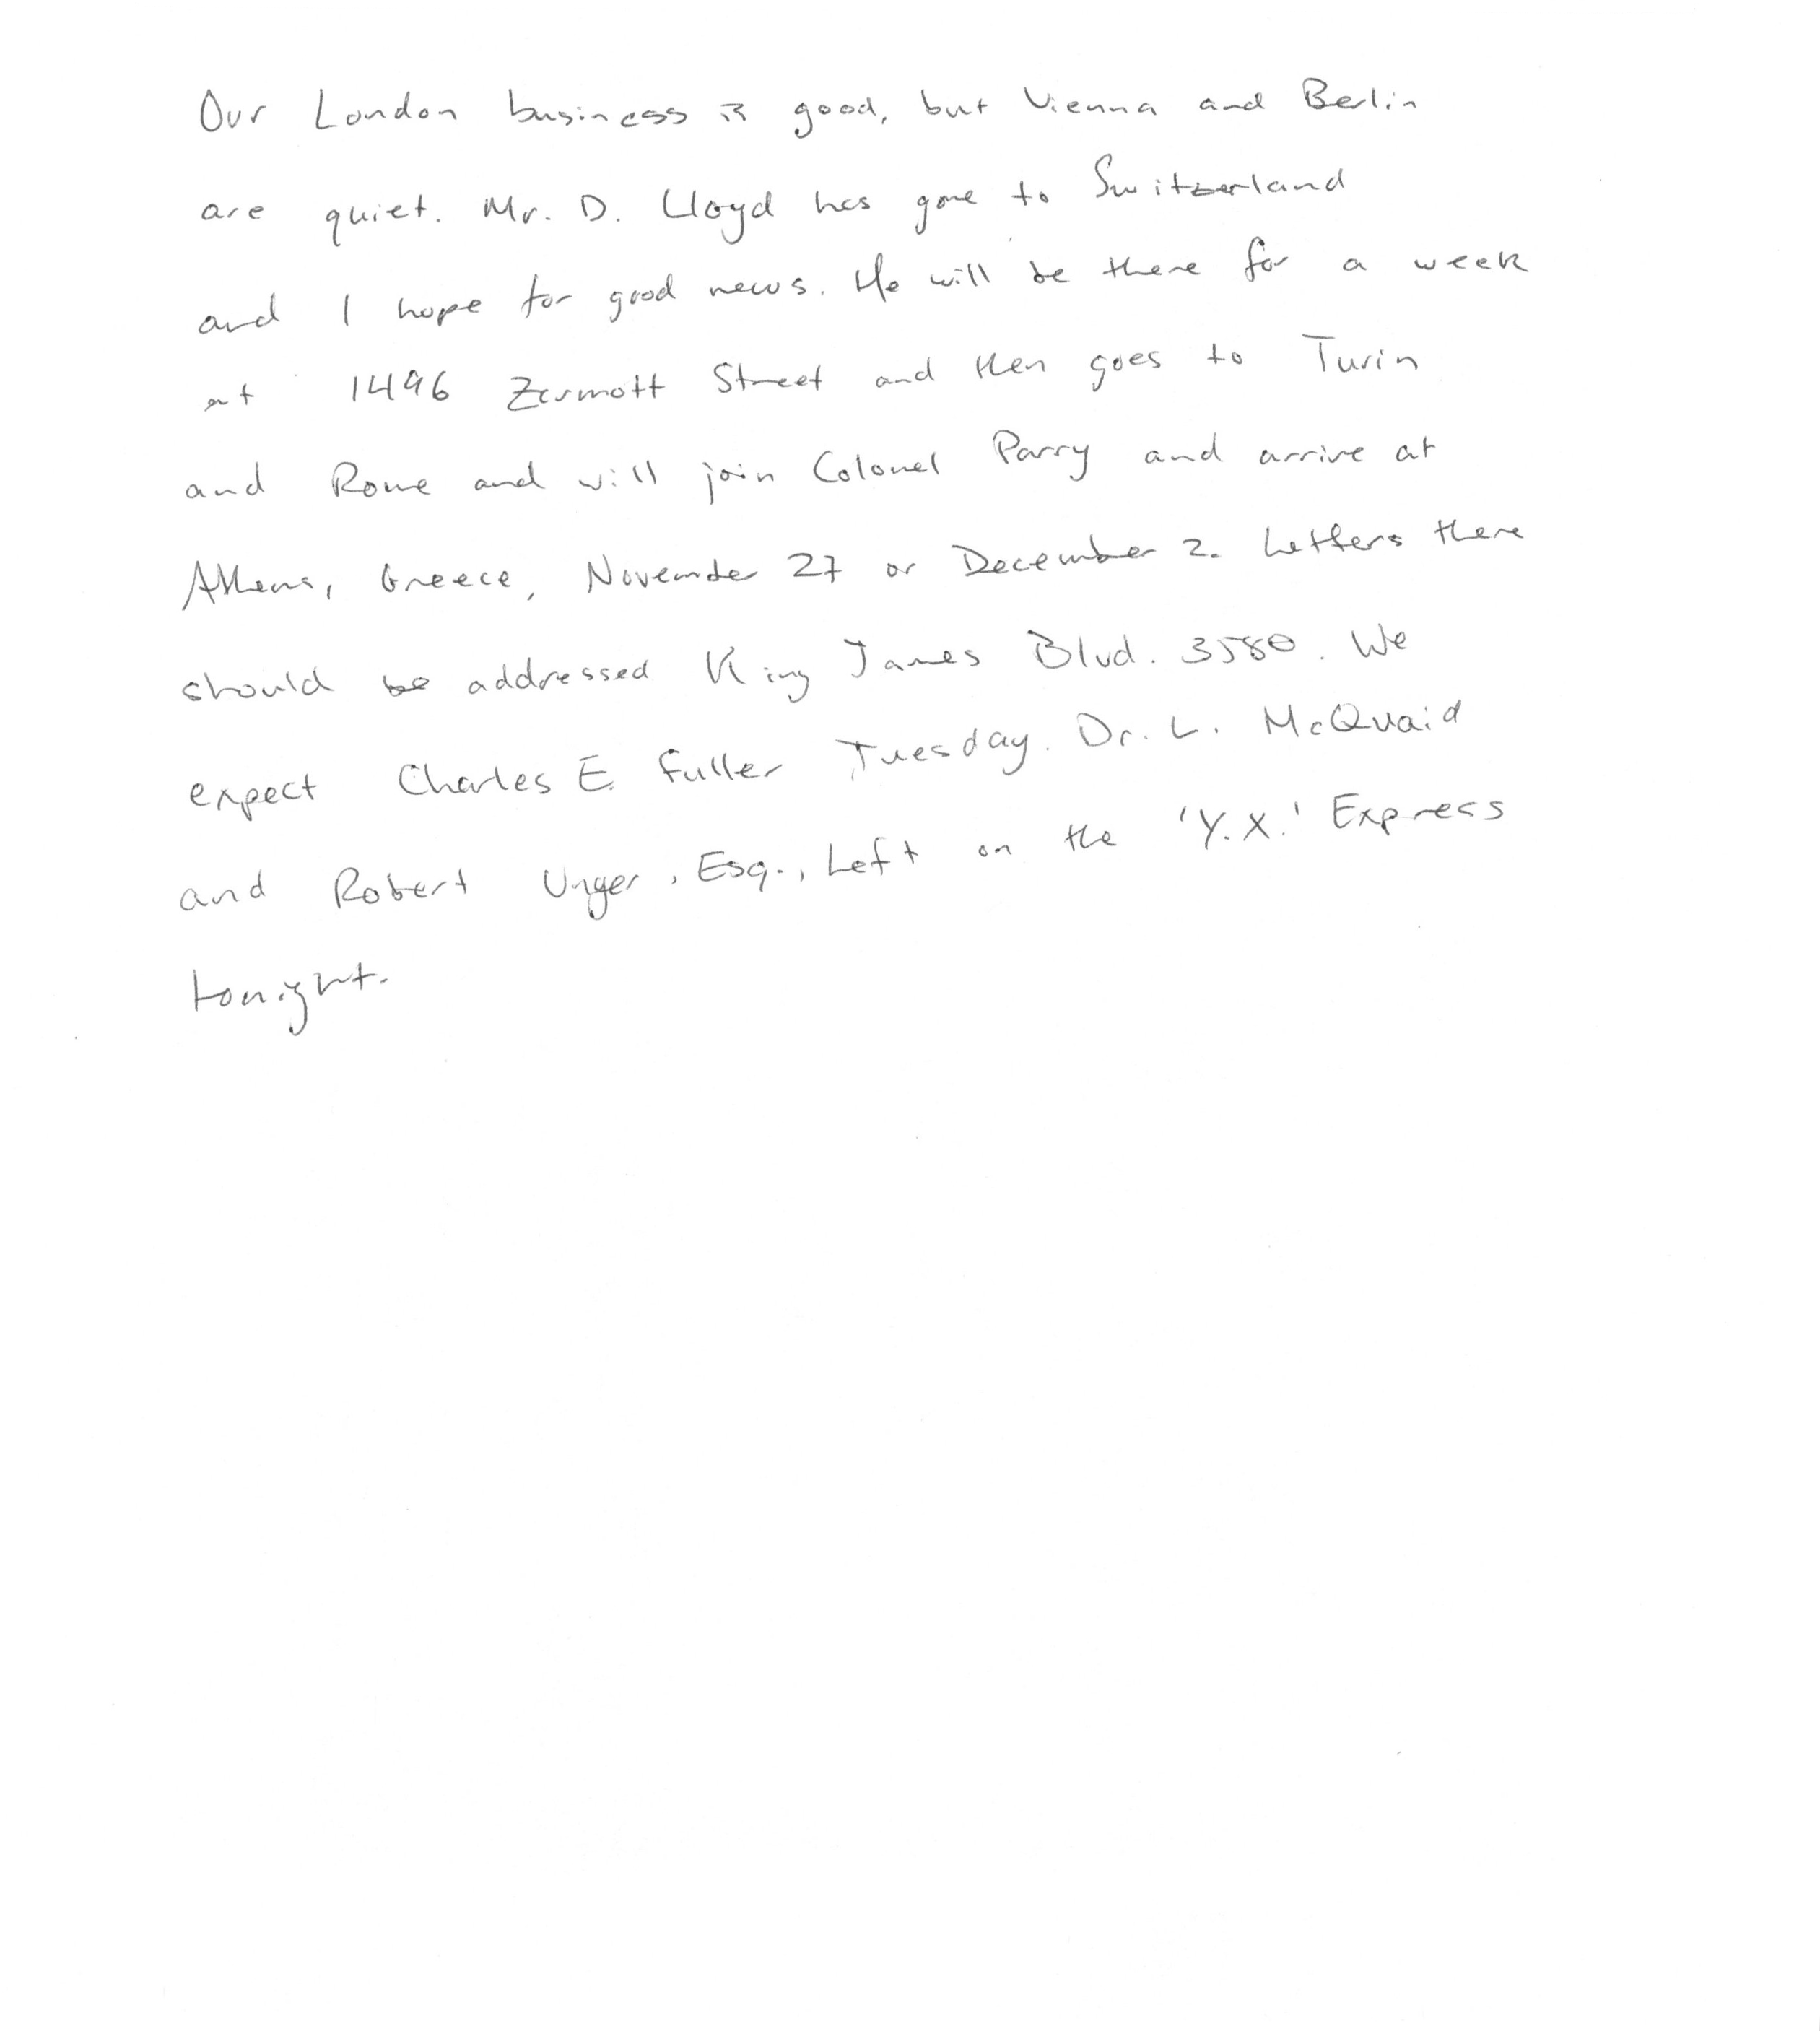 Our London business is good, but Vienna and Berlin
are quiet. Mr. D. Lloyd has gone to Switzerland
and I hope for good news. He will be there for a week
at 1496 Zermott Street and then goes to Turin
and Rome and will join Colonel Parry and arrive at
Athens, Greece, November 27 or December 2. Letters there
should be addressed King James Blvd. 3580. We
expect Charles E. Fuller Tuesday. Dr. L. McQuaid
and Robert Unger, Esq., Left on the 'Y.X.' Express
tonight.